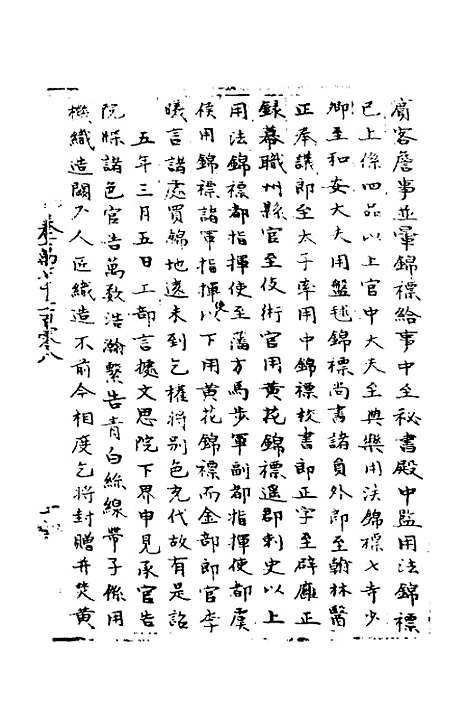 賓客詹事並暈錦標給事中至秘書殿中監用法錦標
已上係四品以上官中大夫至典樂用法錦標七寺少
卿至和安大夫用盤毬錦標尚書諸員外郎至翰林醫
正奉議郎至太子率用中錦標校書郎正字至辟廱正
録幕職州縣官至伎術官用黃花錦標遥郡刺史以上
用法錦標都指揮使至藩方馬步軍副都指揮使都虞
侯用錦標諸軍指揮使以下用黃花錦標而金部郎官李
曦言諸處買錦地遠未到乞權將别色充代故有是詔
五年三月五日工部言據文思院下界申見承官告
院牒諸色官告萬數浩瀚繫告青白絲線帶子係用
機織造闕少人匠織造不前今相度乞將封贈并焚黃
卷一萬七千一百零八